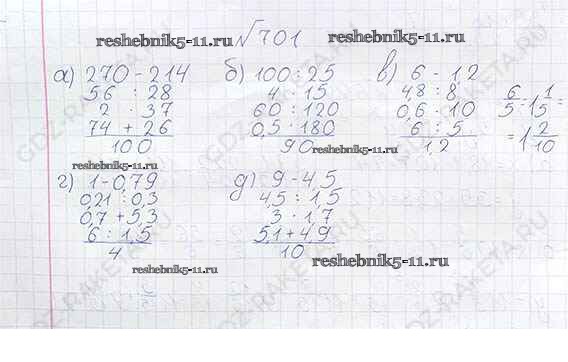 №701
reshebnik5-11.ru
reshebnik5-11.ru
а) 270 - 214
56 : 28
2 · 37
74 + 26
100
б) 100 : 25
4 · 15
60 : 120
0,5 · 180
90
reshebnik5-11.ru
в) 6 · 1,2
48 : 8
0,6 · 10
6 : 5
1,2
6/5 = 1 1/5 =
= 1 2/10
reshebnik5-11.ru
г) 1 - 0,79
0,21 : 0,3
0,7 + 5,3
6 : 1,5
4
reshebnik5-11.ru
д) 9 - 4,5
4,5 : 1,5
3 · 1,7
5,1 + 4,9
10
reshebnik5-11.ru
GDZ-RAKETA.RU